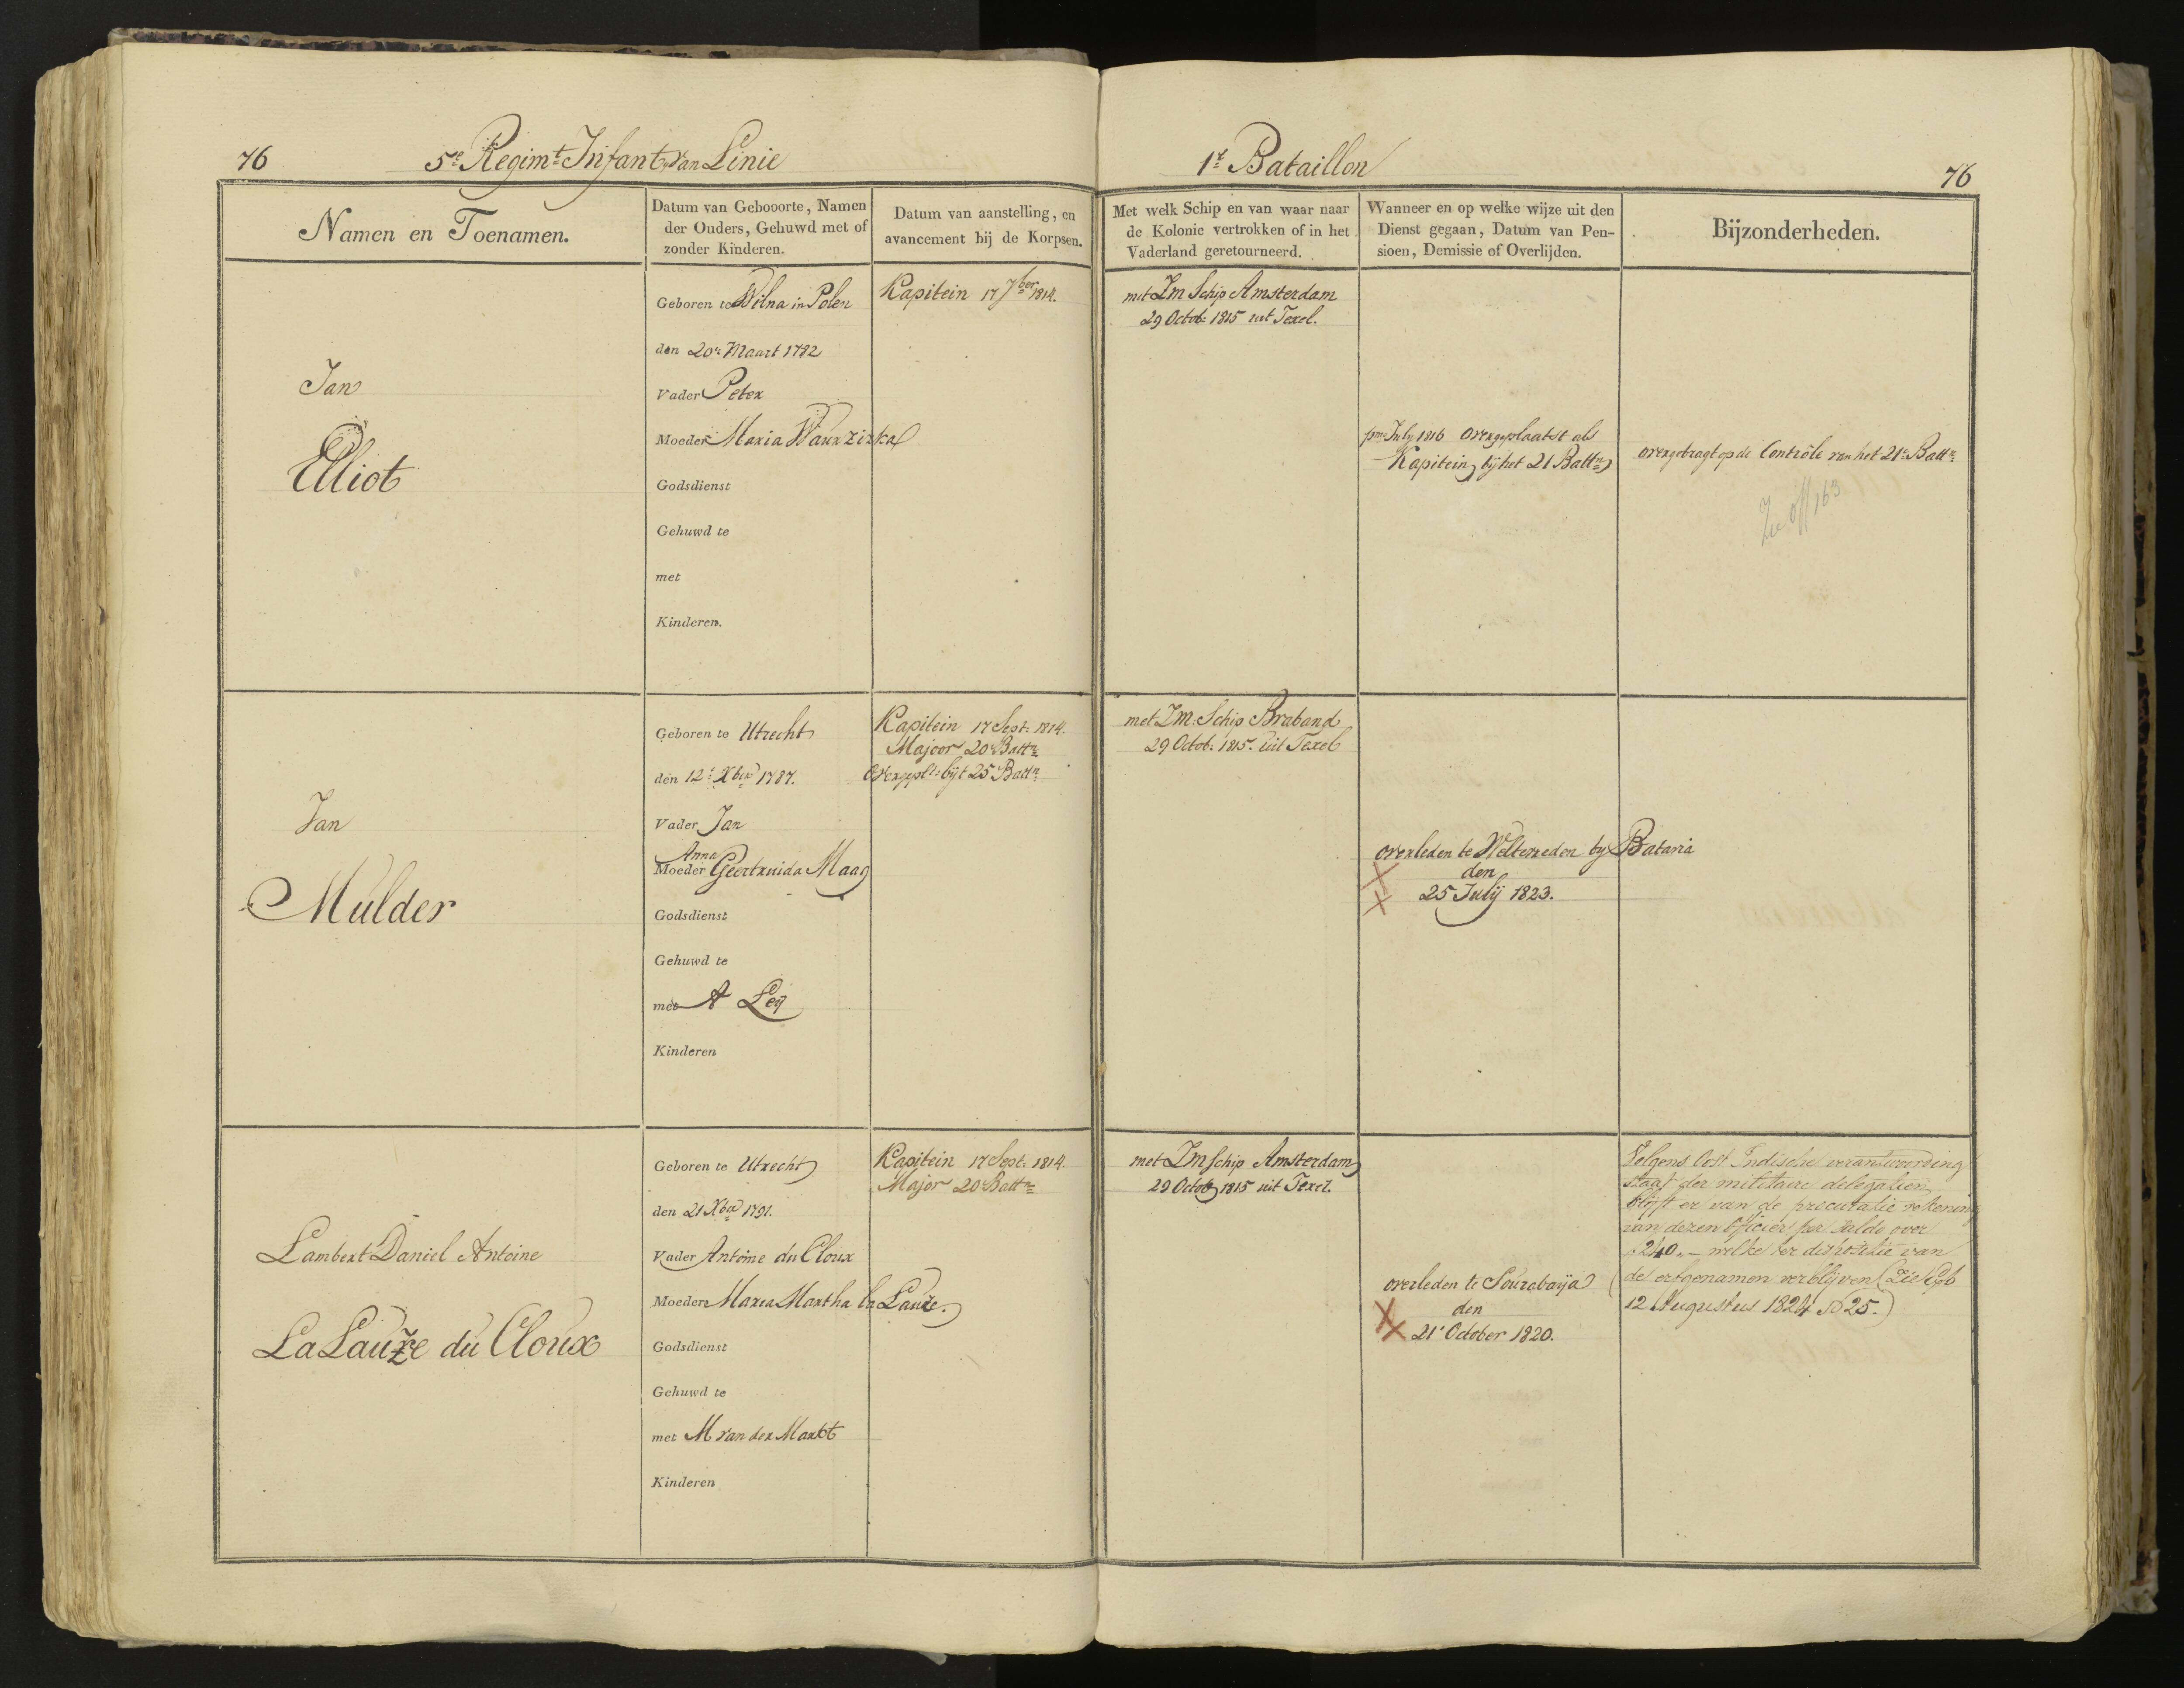 76
5e Regimt Infanty van Linie
1e Bataillon
76
Namen en Toenamen.
Datum van Gebooorte, Namen
der Ouders, Gehuwd met of
zonder Kinderen.
Datum van aanstelling, en
avancement bij de Korpsen.
Met welk Schip en van waar naar
de Kolonie vertrokken of in het
Vaderland geretourneerd.
Wanneer en op welke wijze uit den
Dienst gegaan, Datum van Pen-
sioen, Demissie of Overlijden.
Bijzonderheden.
Jan
Elliot
Geboren te Wilna in Polen
den 20e Maart 1782
Vader Peter
Moeder Maria Wanrzirka
Godsdienst
Gehuwd te
met
Kinderen.
Kapitein 17 7ber 1814.
met Zm Schip Amsterdam
29 Octob: 1815 uit Texel.
pmo July 1816 overgeplaatst als
Kapitein bij het 21 Battn
overgebragt op de Contrôle van het 21e Battn
Zie off 163
Jan
Mulder
Geboren te Utrecht
den 12e Xber 1787.
Vader Jan
Anna
Moeder Geertruida Maag
Godsdienst
Gehuwd te
met A Leij
Kinderen
Kapitein 17 Sept: 1814.
Majoor 20 Battn
Overgeplt: bij t 25 Battn
met Zm: Schip Braband
29 Octob: 1815. uit Texel
overleden te Weltevreden by Batavia
den
25 Julij 1823.
Lambert Daniel Antoine
La Lauze du Cloux
Geboren te Utrecht
den 21 Xber 1791.
Vader Antoine du Cloux
Moeder Maria Martha la Lauze.
Godsdienst
Gehuwd te
met M van der Markt
Kinderen
Kapitein 17 Sept: 1814.
Major 20 Battn
met Zm schip Amsterdam
29 Octob 1815 uit Texel.
overleden te Sourabaija
den
21e October 1820.
Volgens Oost Indische verantwoording
staat der militaire delegatien
blijft er van de procuratie rekening
van dezen officier per saldo over
ƒ 240„– welke ter dispositie van
de erfgenamen verblijven (Zie
12 Augustus 1824 No 25.)